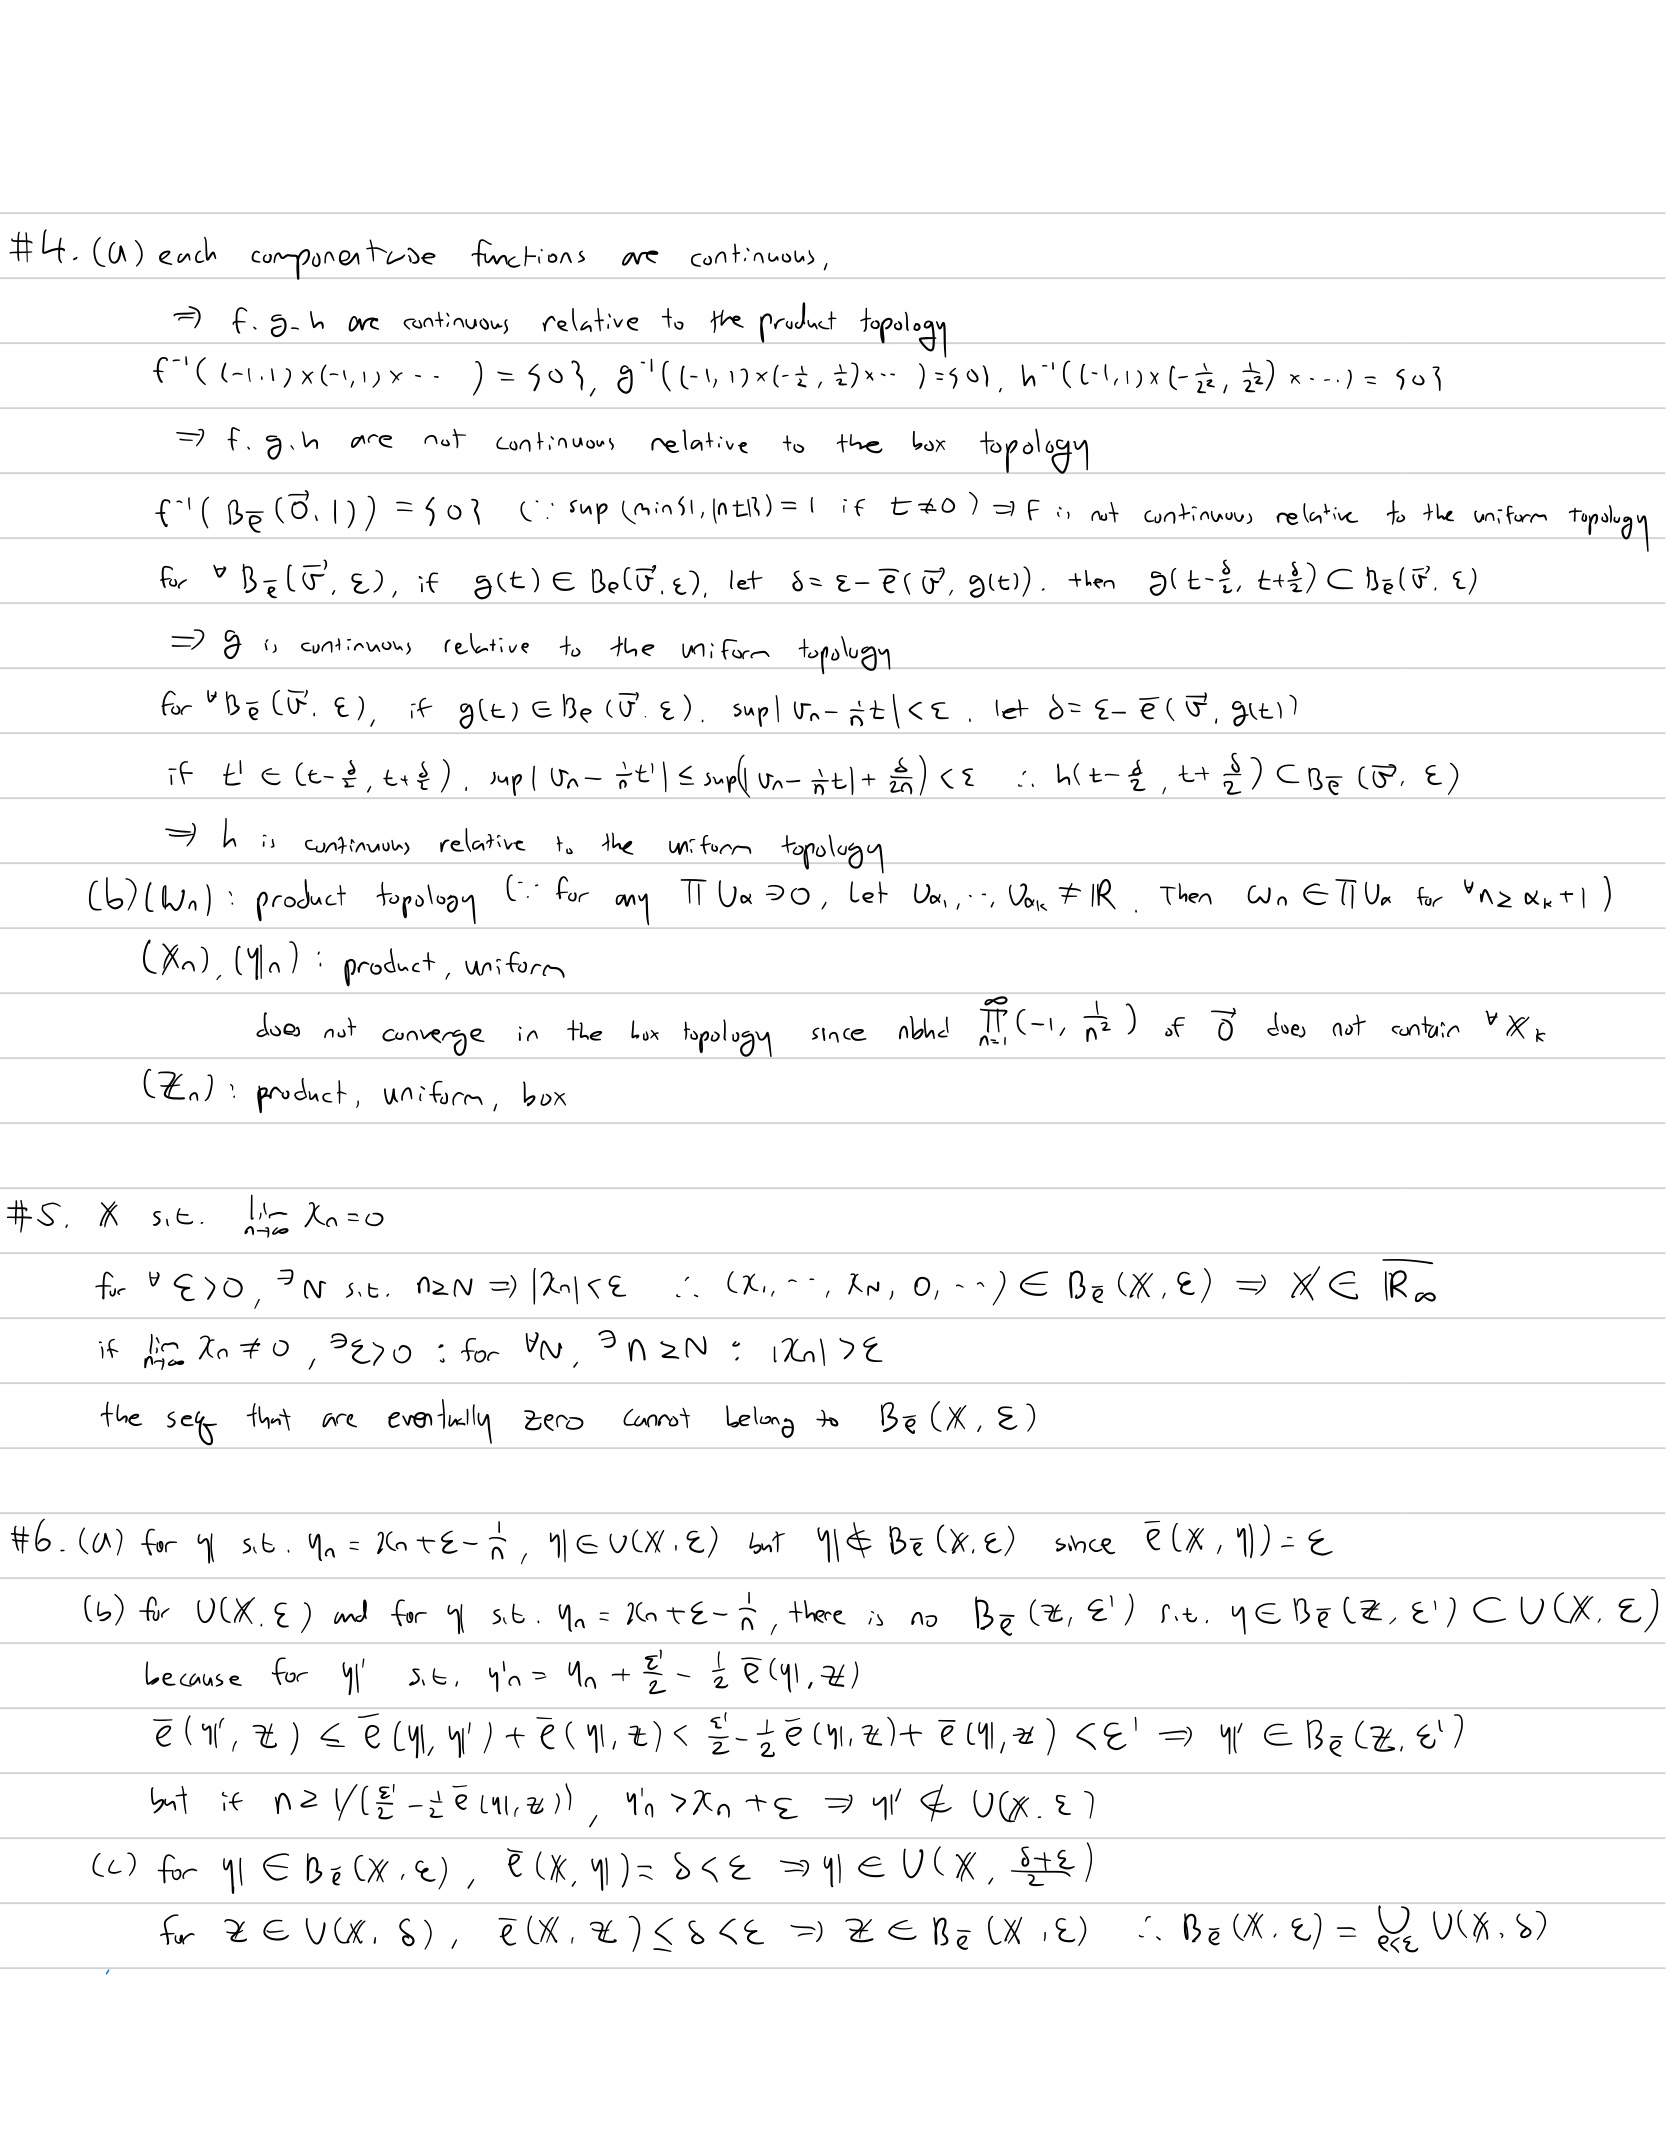 #4. (a) each componentwise functions are continuous,
⇒ f. g. h are continuous relative to the product topology
f⁻¹((-1.1)×(-1,1)×···) = {0}, g⁻¹((-1,1)×(-1/2, 1/2)×···) = {0}, h⁻¹((-1,1)×(-1/2², 1/2²)×···) = {0}
⇒ f. g. h are not continuous relative to the box topology
f⁻¹(B_ρ̄(0⃗. 1)) = {0} (∵ sup(min{1, |nt|}) = 1 if t≠0) ⇒ f is not continuous relative to the uniform topology
for ∀ B_ρ̄(v⃗, ε), if g(t) ∈ B_ρ(v⃗, ε), let δ = ε - ρ̄(v⃗, g(t)). then g(t-δ/2, t+δ/2) ⊂ B_ρ̄(v⃗. ε)
⇒ g is continuous relative to the uniform topology
for ∀B_ρ̄(v⃗. ε), if g(t) ∈ B_ρ(v⃗. ε). sup|v_n - 1/n t| < ε. let δ = ε - ρ̄(v⃗, g(t))
if t' ∈ (t-δ/2, t+δ/2). sup|v_n - 1/n t'| ≤ sup(|v_n - 1/n t| + δ/2n) < ε ∴ h(t-δ/2, t+δ/2) ⊂ B_ρ̄(v⃗. ε)
⇒ h is continuous relative to the uniform topology
(b) (𝕎n) : product topology (∵ for any ΠUα ∋ 0, Let Uα₁, ··, Uα_k ≠ ℝ. Then ωn ∈ ΠUα for ∀n ≥ α_k+1)
(𝕏n), (𝕪n) : product, uniform
does not converge in the box topology since nbhd ∏_{n=1}^∞ (-1, 1/n²) of 0⃗ does not contain ∀𝕏k
(ℤn) : product, uniform, box
#5. 𝕏 s.t. lim_{n→∞} xn = 0
for ∀ε>0, ∃N s.t. n≥N ⇒ |xn| < ε ∴ (x₁, ··, x_N, 0, ··) ∈ B_ρ̄(𝕏, ε) ⇒ 𝕏 ∈ \overline{ℝ_∞}
if lim_{n→∞} xn ≠ 0, ∃ε>0 : for ∀N, ∃n≥N : |xn| > ε
the seq that are eventually zero cannot belong to B_ρ̄(𝕏, ε)
#6. (a) for 𝕪 s.t. yn = xn + ε - 1/n, 𝕪 ∈ U(𝕏. ε) but 𝕪 ∉ B_ρ̄(𝕏. ε) since ρ̄(𝕏, 𝕪) = ε
(b) for U(𝕏. ε) and for 𝕪 s.t. yn = xn + ε - 1/n, there is no B_ρ̄(ℤ, ε') s.t. y ∈ B_ρ̄(ℤ, ε') ⊂ U(𝕏. ε)
because for 𝕪' s.t. y'n = yn + ε'/2 - 1/2 ρ̄(𝕪, ℤ)
ρ̄(𝕪', ℤ) ≤ ρ̄(𝕪, 𝕪') + ρ̄(𝕪, ℤ) < ε'/2 - 1/2 ρ̄(𝕪, ℤ) + ρ̄(𝕪, ℤ) < ε' ⇒ 𝕪' ∈ B_ρ̄(ℤ, ε')
but if n ≥ 1/(ε'/2 - 1/2 ρ̄(𝕪, ℤ)), y'n > xn + ε ⇒ 𝕪' ∉ U(𝕏. ε)
(c) for 𝕪 ∈ B_ρ̄(𝕏. ε), ρ̄(𝕏, 𝕪) = δ < ε ⇒ 𝕪 ∈ U(𝕏, (δ+ε)/2)
for ℤ ∈ U(𝕏. δ), ρ̄(𝕏. ℤ) ≤ δ < ε ⇒ ℤ ∈ B_ρ̄(𝕏, ε) ∴ B_ρ̄(𝕏. ε) = ⋃_{ρ<ε} U(𝕏. δ)